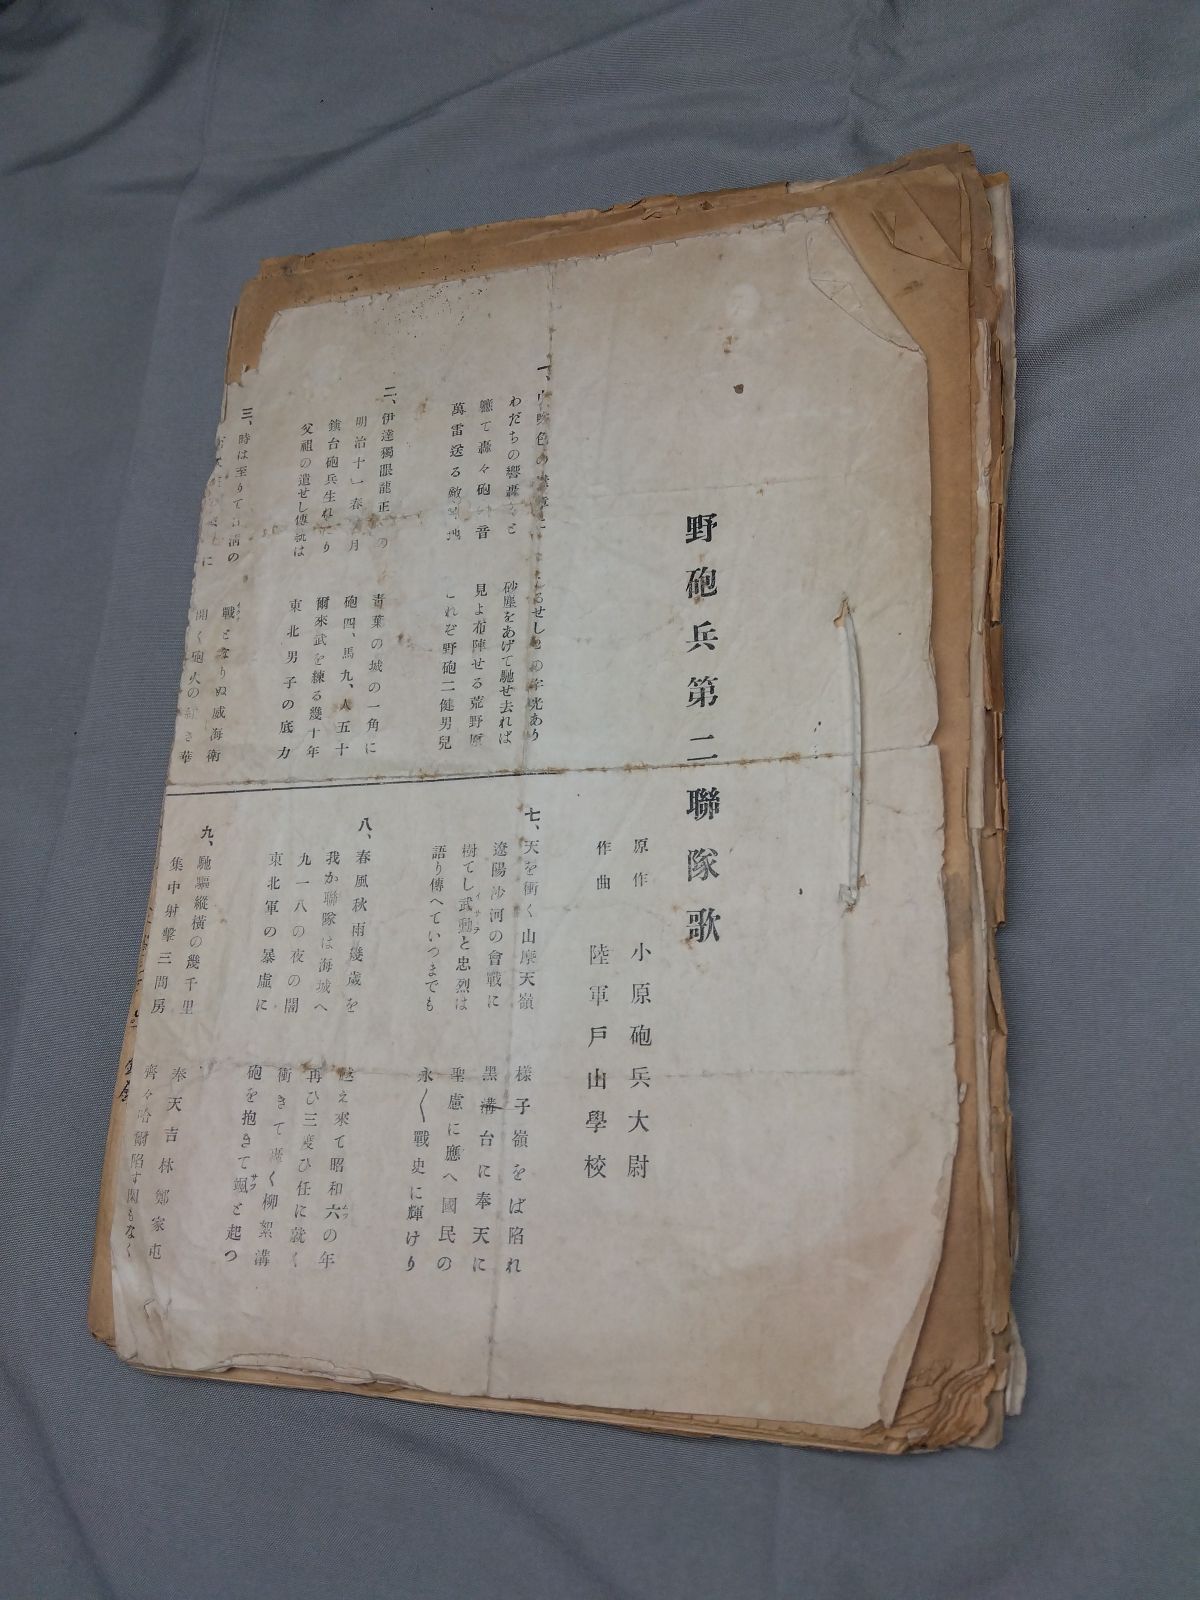 野砲兵第二聯隊歌
原作 小原砲兵大尉
作曲 陸軍戸山學校
一、
わだちの響轟々と 砂塵をあげて馳せ去れば
轟々砲 音 見よ布陣せる荒野原
萬雷送る敵 地 これぞ野砲二健男兒
二、伊達獨眼龍正 の 青葉の城の一角に
明治十一春 月 砲四、馬九、人五十
鎮台砲兵生れたり 爾來武を練る幾十年
父祖の遺せし傳統は 東北男子の底力
三、時は至りて日淸の 戰となりぬ威海衛
に 開く砲火の紅き華
七、天を衝く山摩天嶺 様子嶺をば陷れ
遼陽沙河の會戰に 黑溝台に奉天に
樹てし武勳と忠烈は 聖慮に應へ國民の
イサヲ
語り傳へていつまでも 永く戰史に輝けり
八、春風秋雨幾歳を 越え來て昭和六の年
我か聯隊は海城へ 再ひ三度ひ任に就く
九一八の夜の闇 衝きて く柳絮溝
東北軍の暴虐に 砲を抱きて颯と起つ
サツ
九、馳驅縱橫の幾千里 奉天吉林鄭家屯
集中射擊三間房 齊々哈爾陷す間もなく